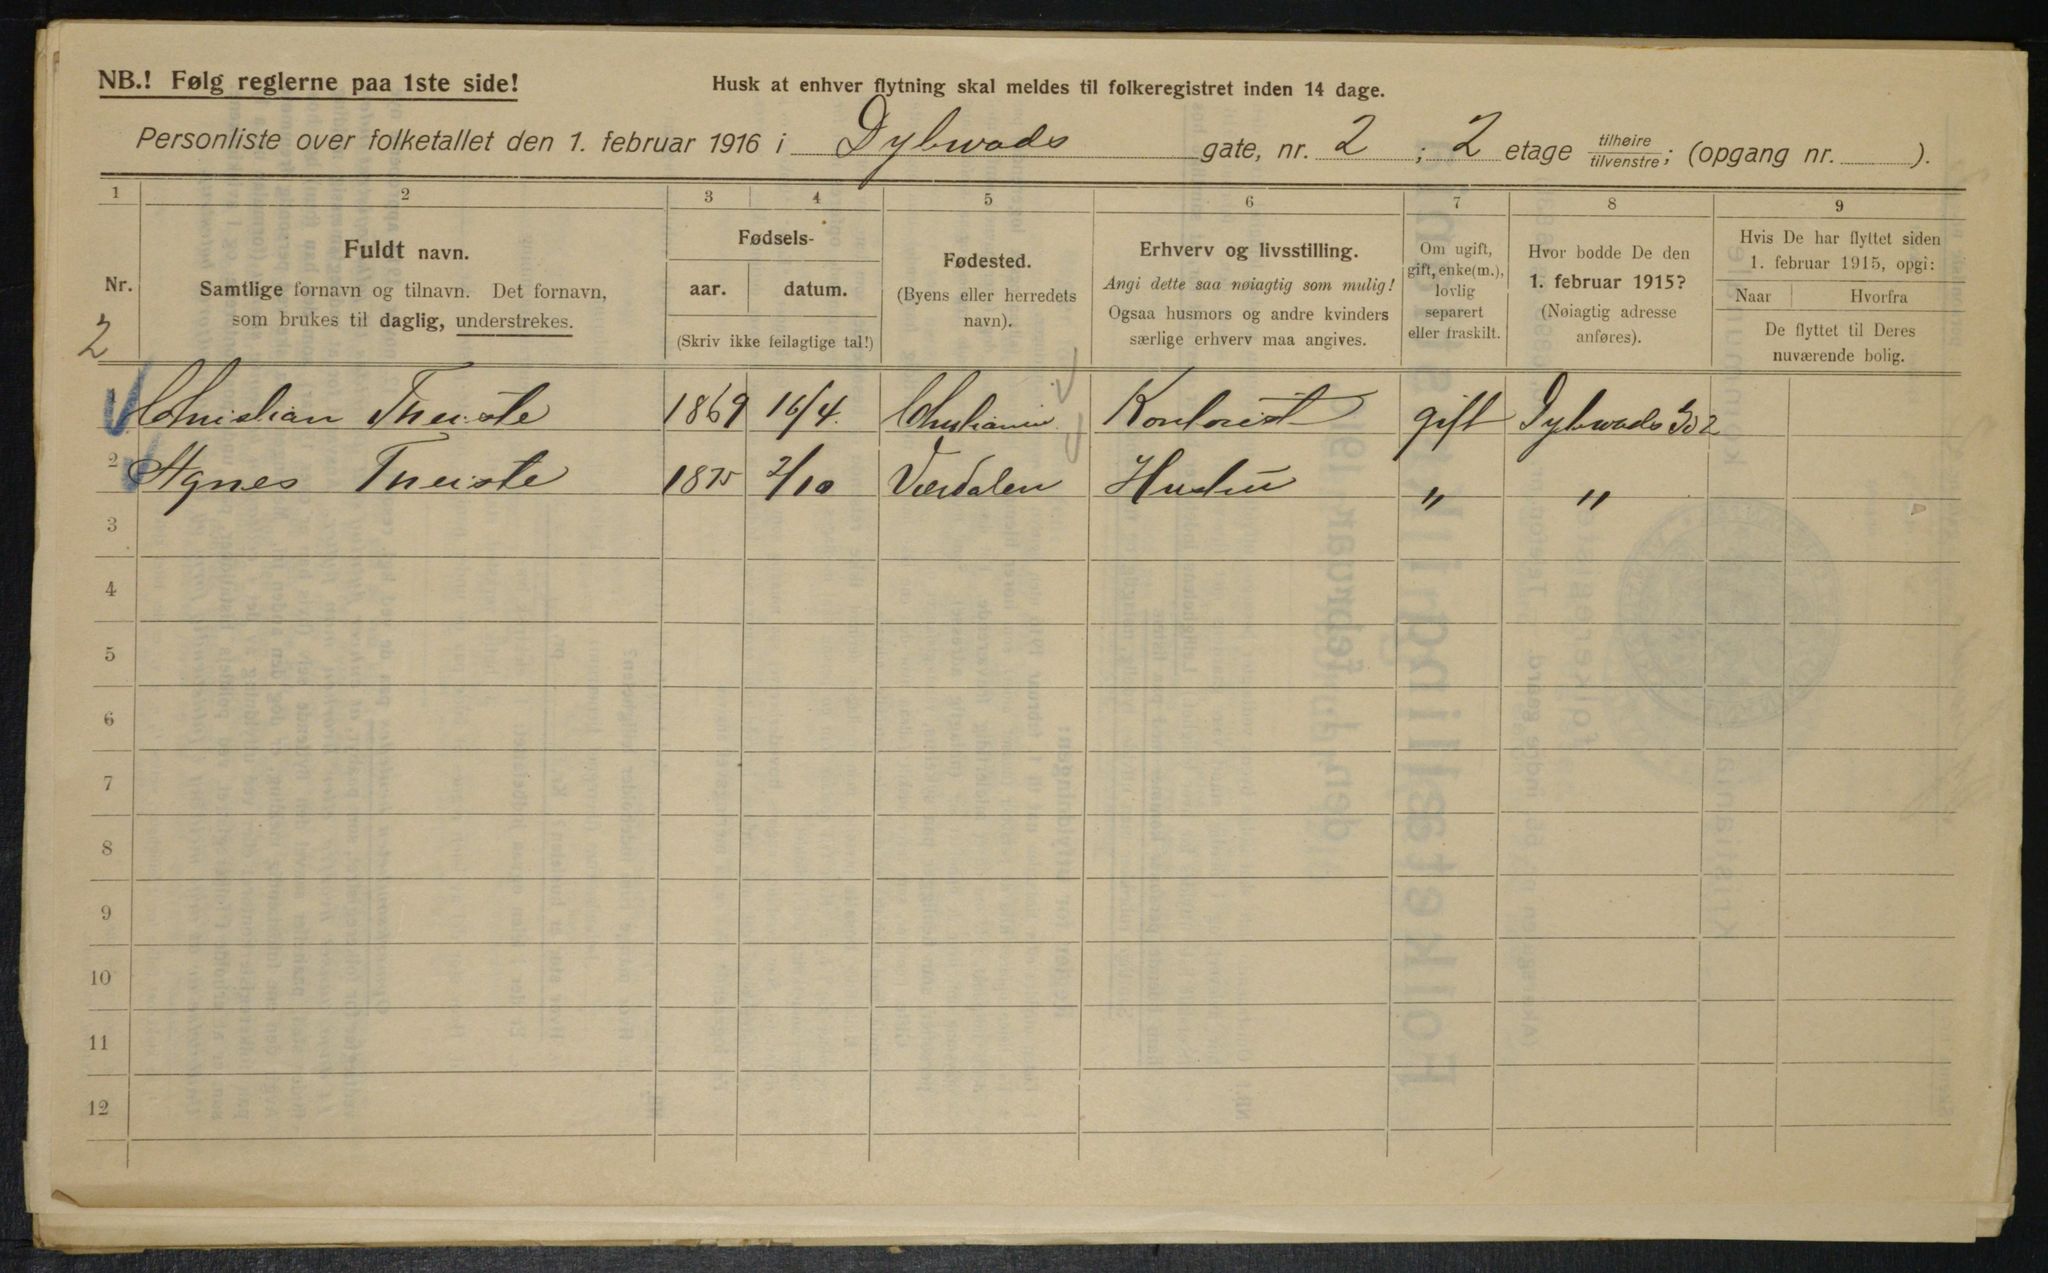 NB.! Følg reglerne paa 1ste side!
Husk at enhver flytning skal meldes til folkeregistret inden 14 dage.
Personliste over folketallet den 1. februar 1916 i Dybwads gate, nr. 2 ; 2 etage tilhøire/tilvenstre; (opgang nr. ).
1 2 3 4 5 6 7 8 9
Nr.
2
Fuldt navn.
Samtlige fornavn og tilnavn. Det fornavn,
som brukes til daglig, understrekes.
Fødsels-
aar. datum.
(Skriv ikke feilagtige tal!)
Fødested.
(Byens eller herredets
navn).
Erhverv og livsstilling.
Angi dette saa nøiagtig som mulig!
Ogsaa husmors og andre kvinders
særlige erhverv maa angives.
Om ugift,
gift, enke(m.),
lovlig
separert
eller fraskilt.
Hvor bodde De den
1. februar 1915?
(Nøiagtig adresse
anføres).
Hvis De har flyttet siden
1. februar 1915, opgi:
Naar Hvorfra
De flyttet til Deres
nuværende bolig.
Christian Theiste 1869 16/4. Christiania Kontorist gift Dybwads G 2
2 Agnes Theiste 1875 2/10 Værdalen Hustru " "
3
4
5
6
7
8
9
10
11
12